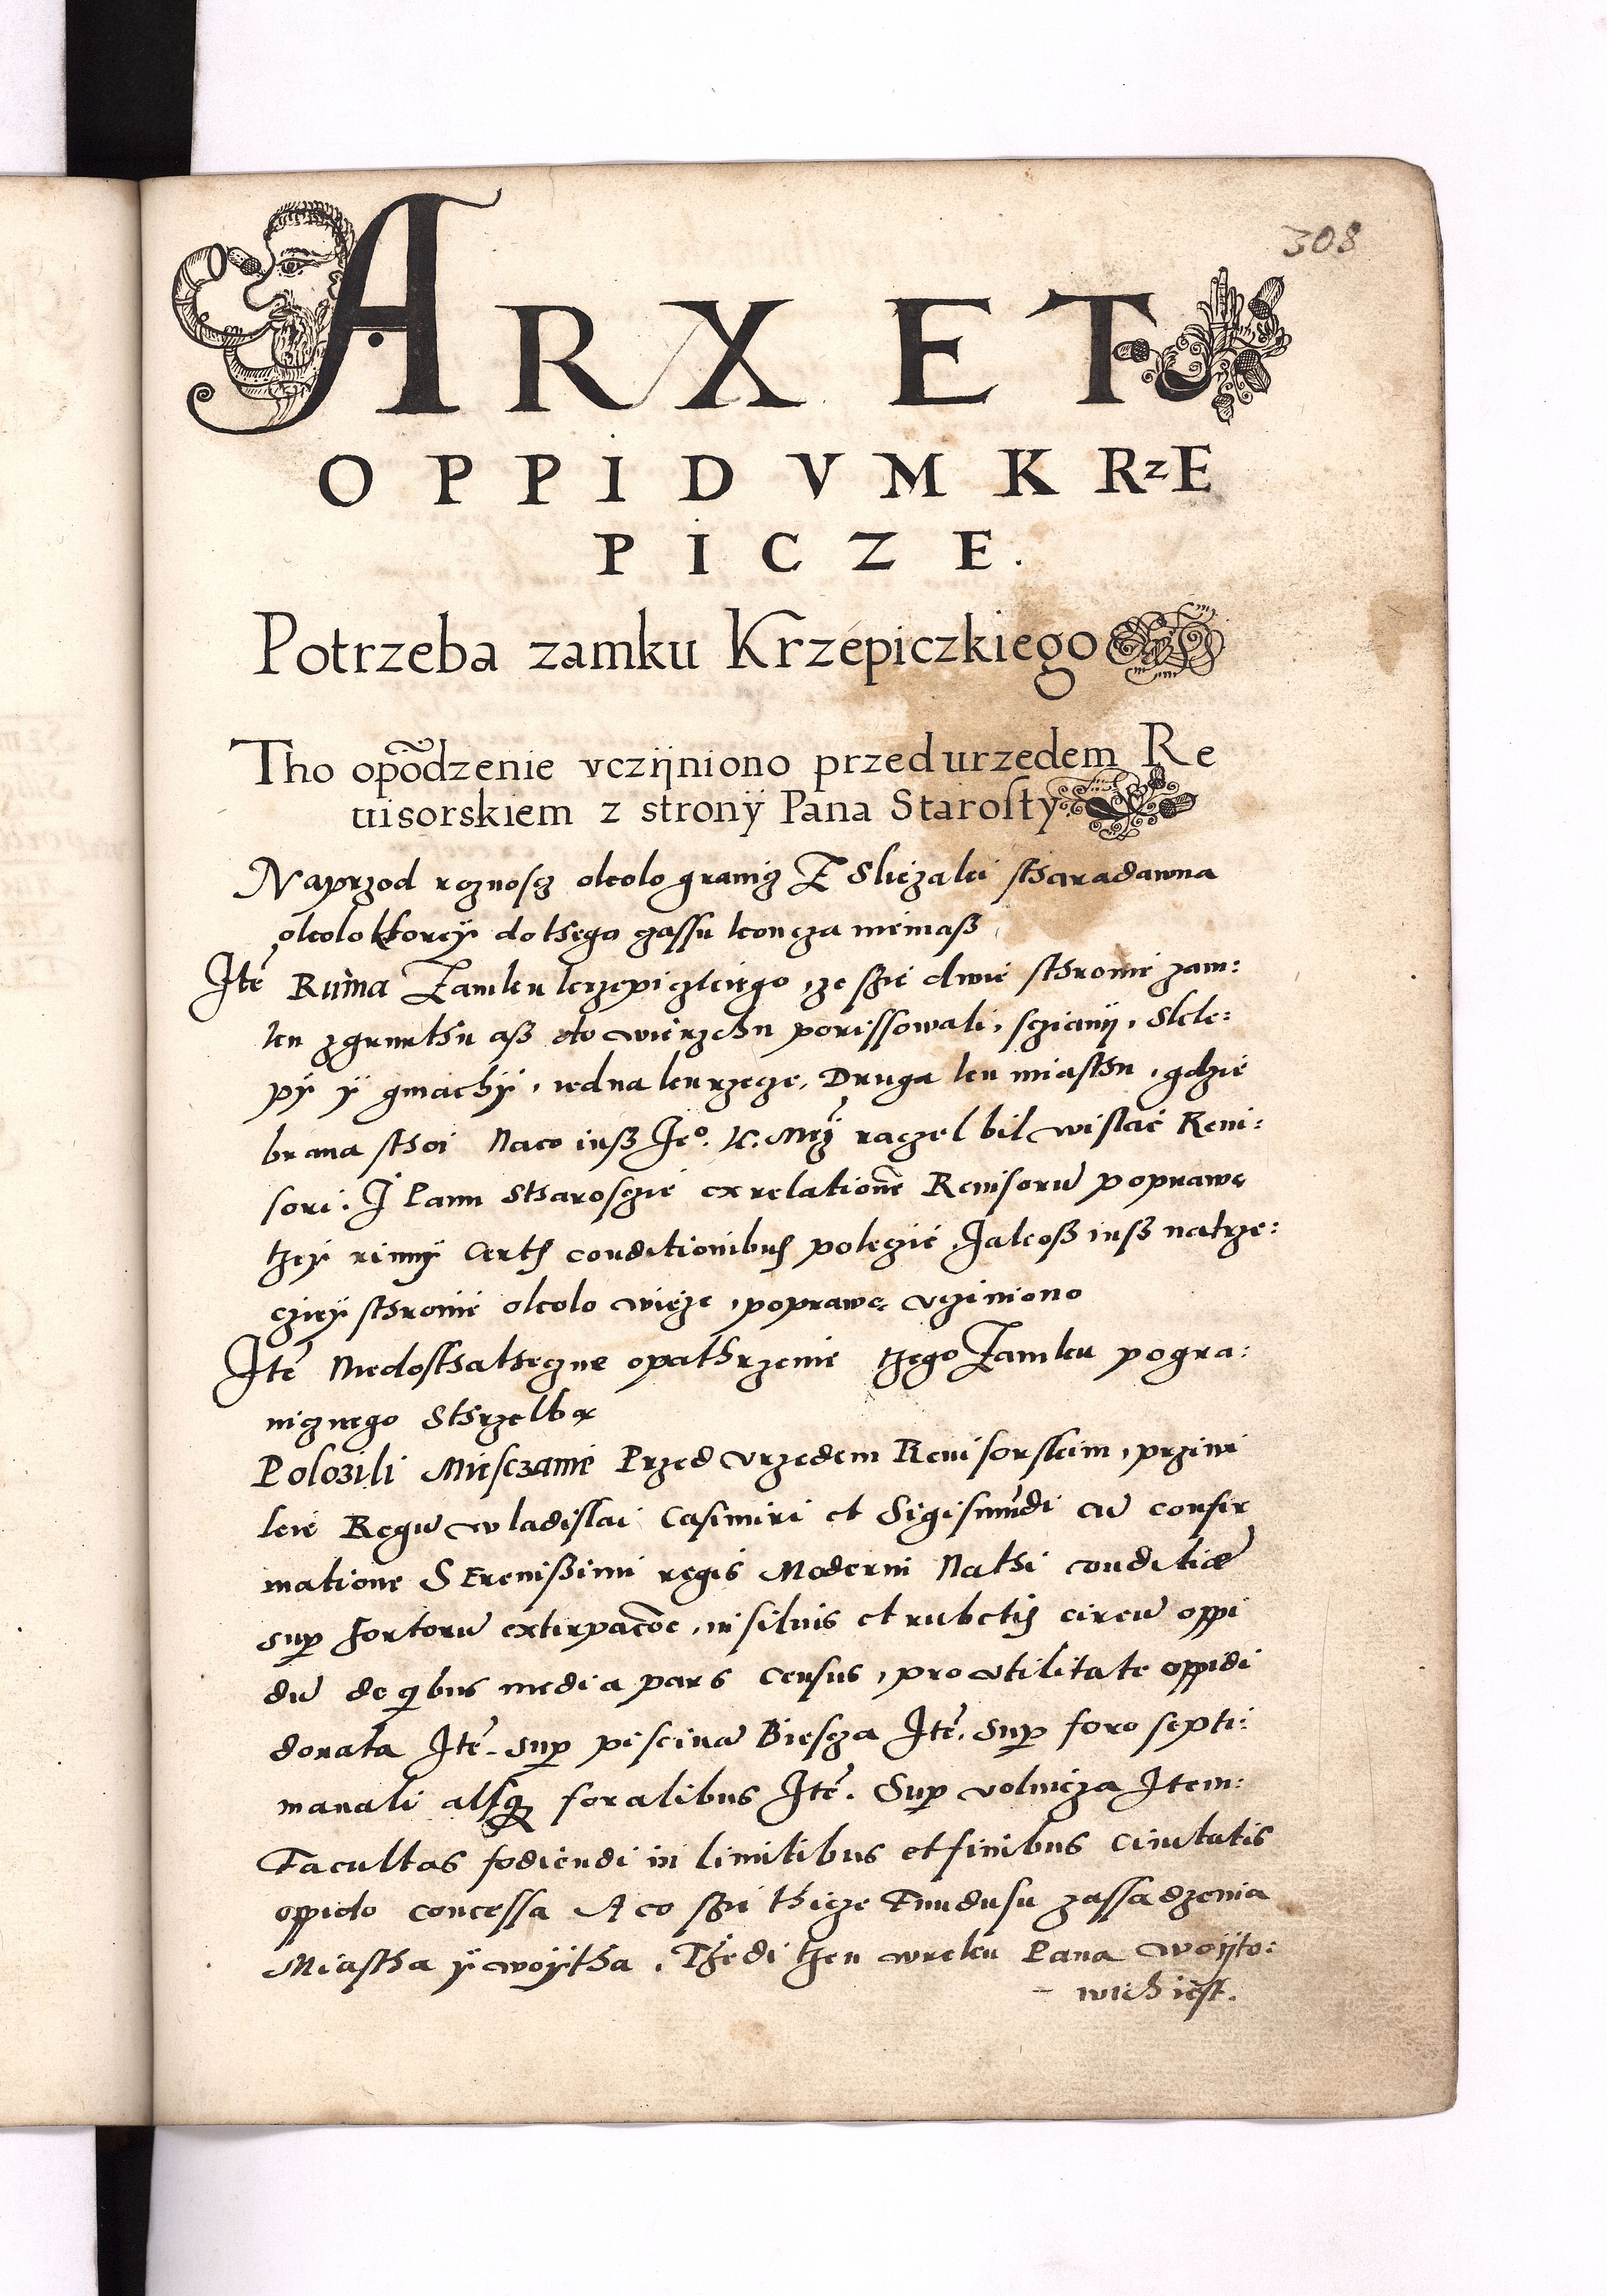 308
ARX ET
OPPIDVM KRzE
PICZE.
Potrzeba zamku Krzepiczkiego
Tho opõdzenie vczÿniono przed urzedem Re
uisorskiem z stronÿ Pana Starosty.
Naprzod roznoscz około granicz Z Sliezaki stharadawna
około ktoreÿ do thego czassu koncza niemasß
Itẽ Ruina Zamku krzepiczkiego, ze szie dwie stronie zam:
ku zgrunthu asß do wierzchu porissowali, scianÿ, Skle:
pÿ ÿ gmachÿ, iedna ku rzecze, Druga ku miasthu, gdzie
brana sthoi Naco iusß Je°. K. Mcz raczel bil wislac Reui:
sori. J Panu Stharosczie ex relatione Reuisorũ poprawę
tzeÿ rinnÿ Certis conditionibus poleczic, Jakosß iusß natrze:
cziey stronie około wieze, poprawę vcziniono
Itẽ Niedosthatheczne opathrzenie tzego Zamku pogra:
nicznego Sthrzelbą
Polozili Miesczanie Przed vrzedem Reuisorskim, przivi
leie Regũ wladislai Casimiri et Sigismũdi cũ confir
matione SErenisßimi regis Moderni Nathi conditiõe
sup hortorũ extirpacõe, in siluis et rubetis circũ oppi
dũ de qibus media pars census, pro vtilitate oppidi
donata Itẽ. sup piscina Biescza Itẽ. Sup foro septi:
manali alsq foralibus Itẽ. Sup volnicza Item:
Facultas fodiendi in limitibus et finibus Ciuitatis
oppido concessa A co szie thicze Fundusu zassadzenia
Miastha ÿ woÿtha, Thedi tzen wreku Pana woÿto:
wich iest.